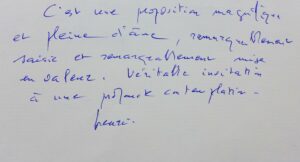 C'est une proposition magnifique
et pleine d'âme, remarquablement
saisie et remarquablement mise
en valeur. Véritable invitation
à une contemplation.
henri.